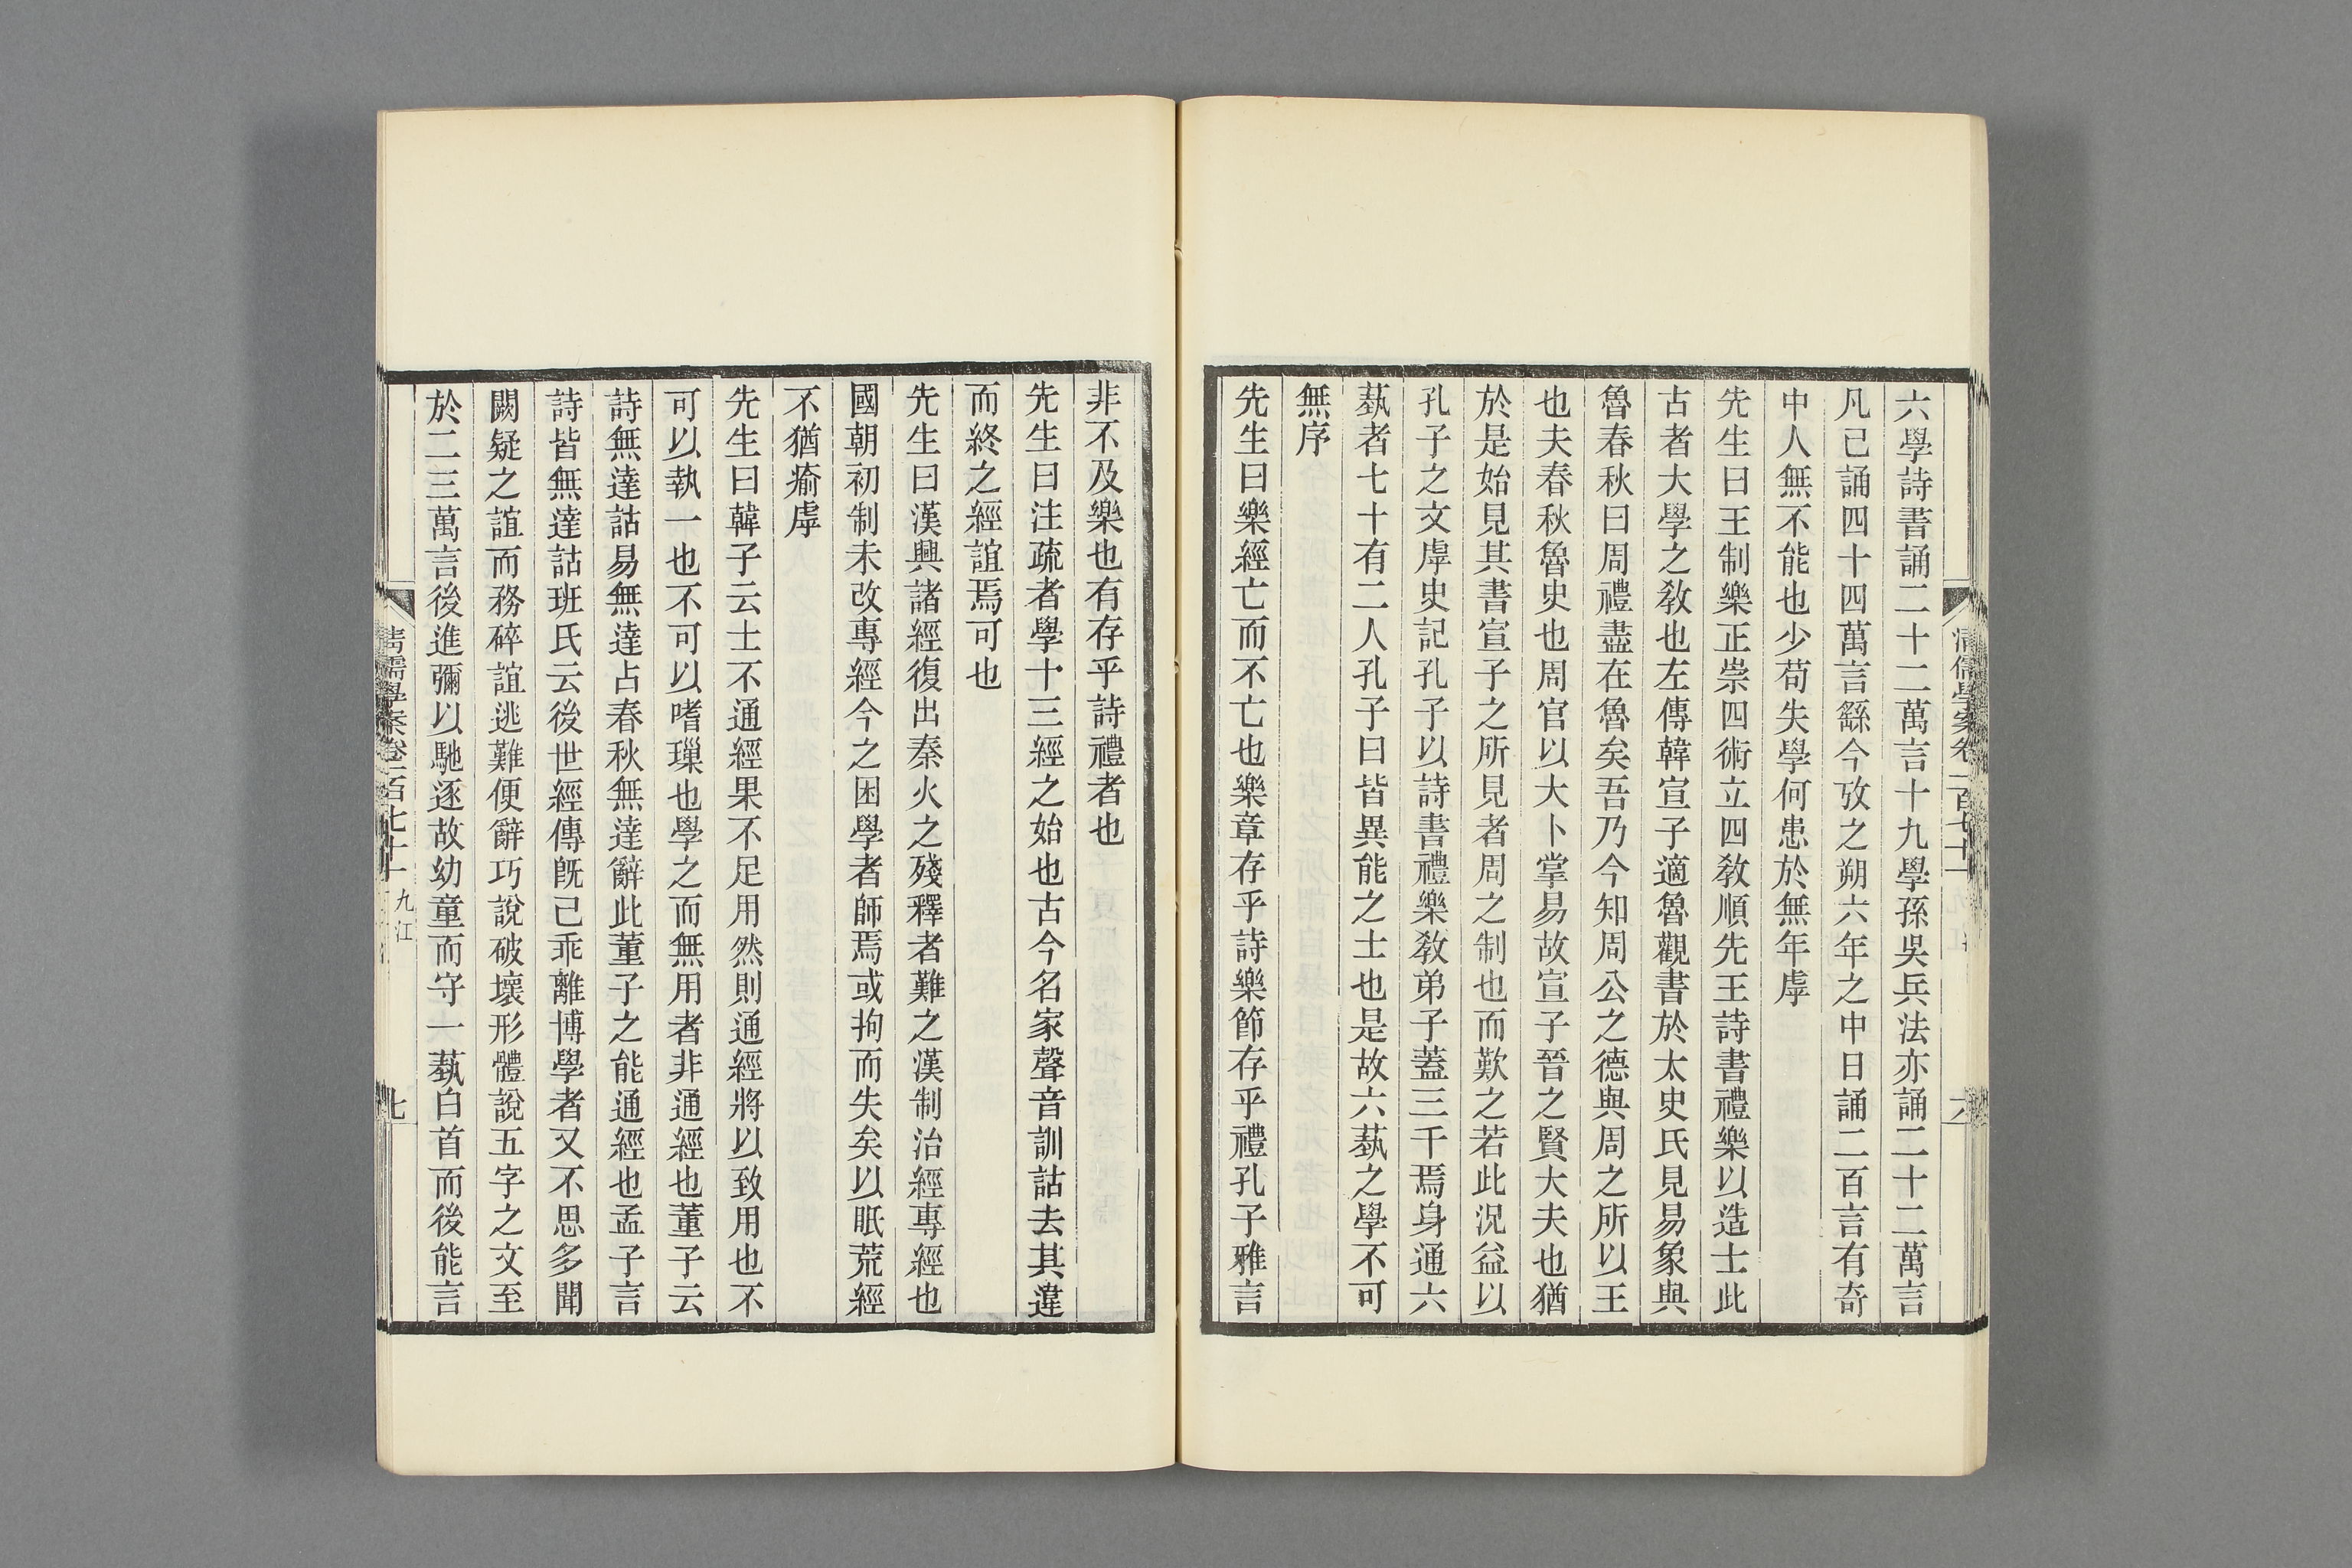 六學詩書誦二十二萬言十九學孫吳兵法亦誦二十二萬言
凡已誦四十四萬言繇今攷之朔六年之中日誦二百言有奇
中人無不能也少苟失學何患於無年虖
先生曰王制樂正崇四術立四敎順先王詩書禮樂以造士此
古者大學之敎也左傳韓宣子適魯觀書於太史氏見易象與
魯春秋曰周禮盡在魯矣吾乃今知周公之德與周之所以王
也夫春秋魯史也周官以大卜掌易故宣子晉之賢大夫也猶
於是始見其書宣子之所見者周之制也而歎之若此況益以
孔子之文虖史記孔子以詩書禮樂敎弟子蓋三千焉身通六
蓺者七十有二人孔子曰皆異能之士也是故六蓺之學不可
無序
先生曰樂經亡而不亡也樂章存乎詩樂節存乎禮孔子雅言
清儒學案卷一百七十一
六
非不及樂也有存乎詩禮者也
先生曰注疏者學十三經之始也古今名家聲音訓詁去其違
而終之經誼焉可也
先生曰漢興諸經復出秦火之殘釋者難之漢制治經專經也
國朝初制未改專經今之困學者師焉或拘而失矣以眂荒經
不猶瘉虖
先生曰韓子云士不通經果不足用然則通經將以致用也不
可以執一也不可以嗜璅也學之而無用者非通經也董子云
詩無達詁易無達占春秋無達辭此董子之能通經也孟子言
詩皆無達詁班氏云後世經傳旣已乖離博學者又不思多聞
闕疑之誼而務碎誼逃難便辭巧說破壞形體說五字之文至
於二三萬言後進彌以馳逐故幼童而守一蓺白首而後能言
清儒學案卷一百七十一 九江
七